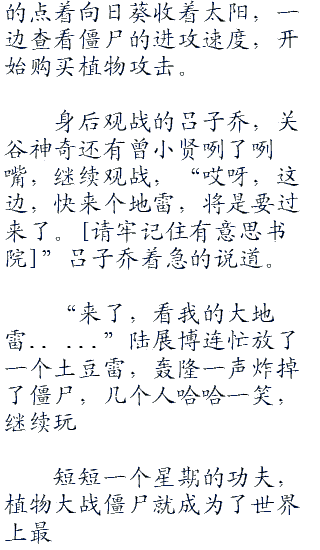 的点着向日葵收着太阳，一
边查看僵尸的进攻速度，开
始购买植物攻击。
身后观战的吕子乔，关
谷神奇还有曾小贤咧了咧
嘴，继续观战，“哎呀，这
边，快来个地雷，将是要过
来了。[请牢记住有意思书
院]”吕子乔着急的说道。
“来了，看我的大地
雷.. ...”陆展博连忙放了
一个土豆雷，轰隆一声炸掉
了僵尸，几个人哈哈一笑，
继续玩
短短一个星期的功夫，
植物大战僵尸就成为了世界
上最